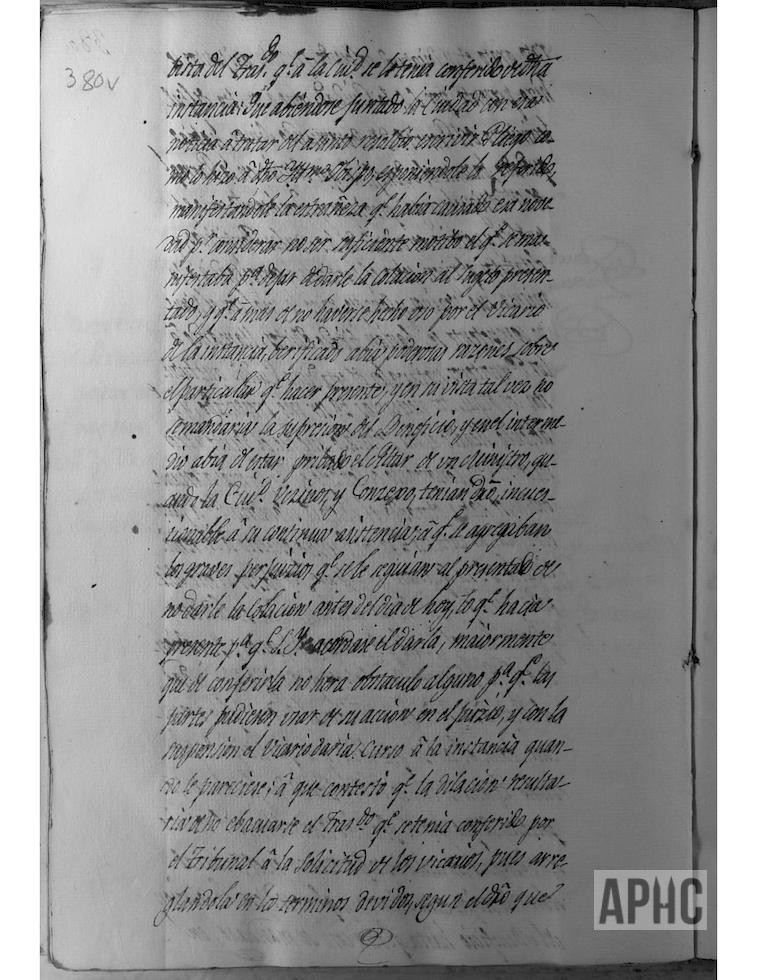 380v
vista del Tras.do q.e â la Ciu.d se le tenia conferido de dha
instancia: Que abiendose juntado la Ciudad con esta
noticia â tratar del asunto resolbio escrivir Pliego co-
mo lo hizo â dho Ill.mo Obispo, exponiendole lo referido,
manifestandole la estrañeza q.e habia causado esa nove-
dad p.r considerar no ser suficiente motibo el q.e se ma-
nifestaba p.a dejar de darle la Colacion al sugeto presen-
tado, y q.e â mas de no haberse hecho eso por el Vicario
de la instancia, berificado abia poderosas razones sobre
el particular q.e hacer presente, y en su vista tal vez no
se mandaria la supresion del Beneficio, y en el interme-
dio abia de estar pribado el Altar de un Ministro, qu-
ando la Ciu.d Vezinos, y Conzejo, tenian dro, incues-
tionable â su continua asistencia; â q.e se agregaban
los graves perjuizios q.e se le seguian al presentado de
no darle la Colacion antes del dia de hoy, lo q.e hacia
presente p.a q.e S. Y. acordase el darla, maiormente
que de conferirla no hera obstaculo alguno p.a q.e las
partes pudiesen usar de su accion en el juizio, y con la
suspension el Vicario daria Curso â la instancia quan-
do le pareciese; â que contestó q.e la dilacion resulta-
ria de no ebacuarse el Tras.do q.e se tenia conferido por
el Tribunal â la Solicitud de los vicarios, pues arre-
glandola en los terminos devidos, segun el dro que
APHC